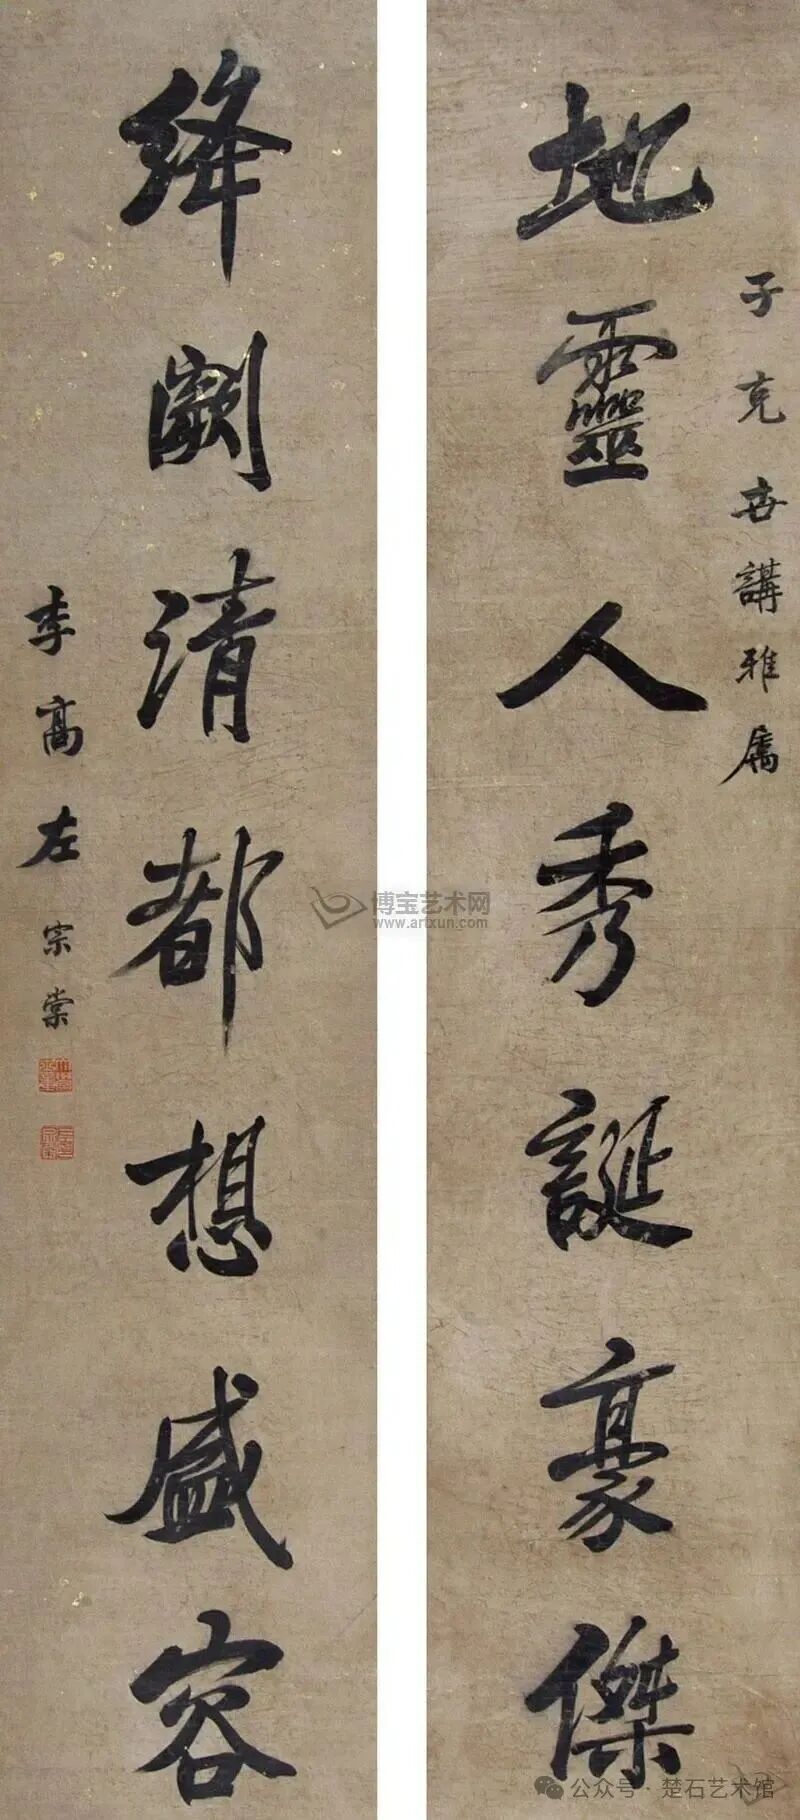 地靈人秀誕豪傑
子克世講雅屬
絳闕清都想盛容
季高左宗棠
博宝艺术网
www.artxun.com
公众号·楚石艺术馆